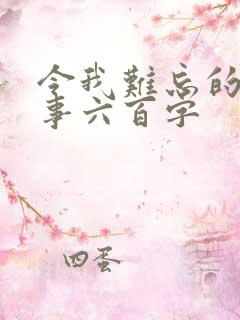 令我難忘的
事六百字
四蛋